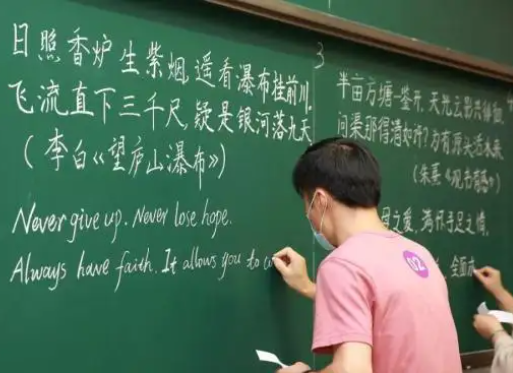 日照香炉生紫烟,遥看瀑布挂前川,
飞流直下三千尺,疑是银河落九天
(李白《望庐山瀑布》)
Never give up. Never lose hope.
Always have faith. It allows you to co
3
半亩方塘一鉴开,天光云影共徘徊,
问渠那得清如许?为有源头活水来
(朱熹《观书有感》)
母之爱,满怀手足之情,
全面
02